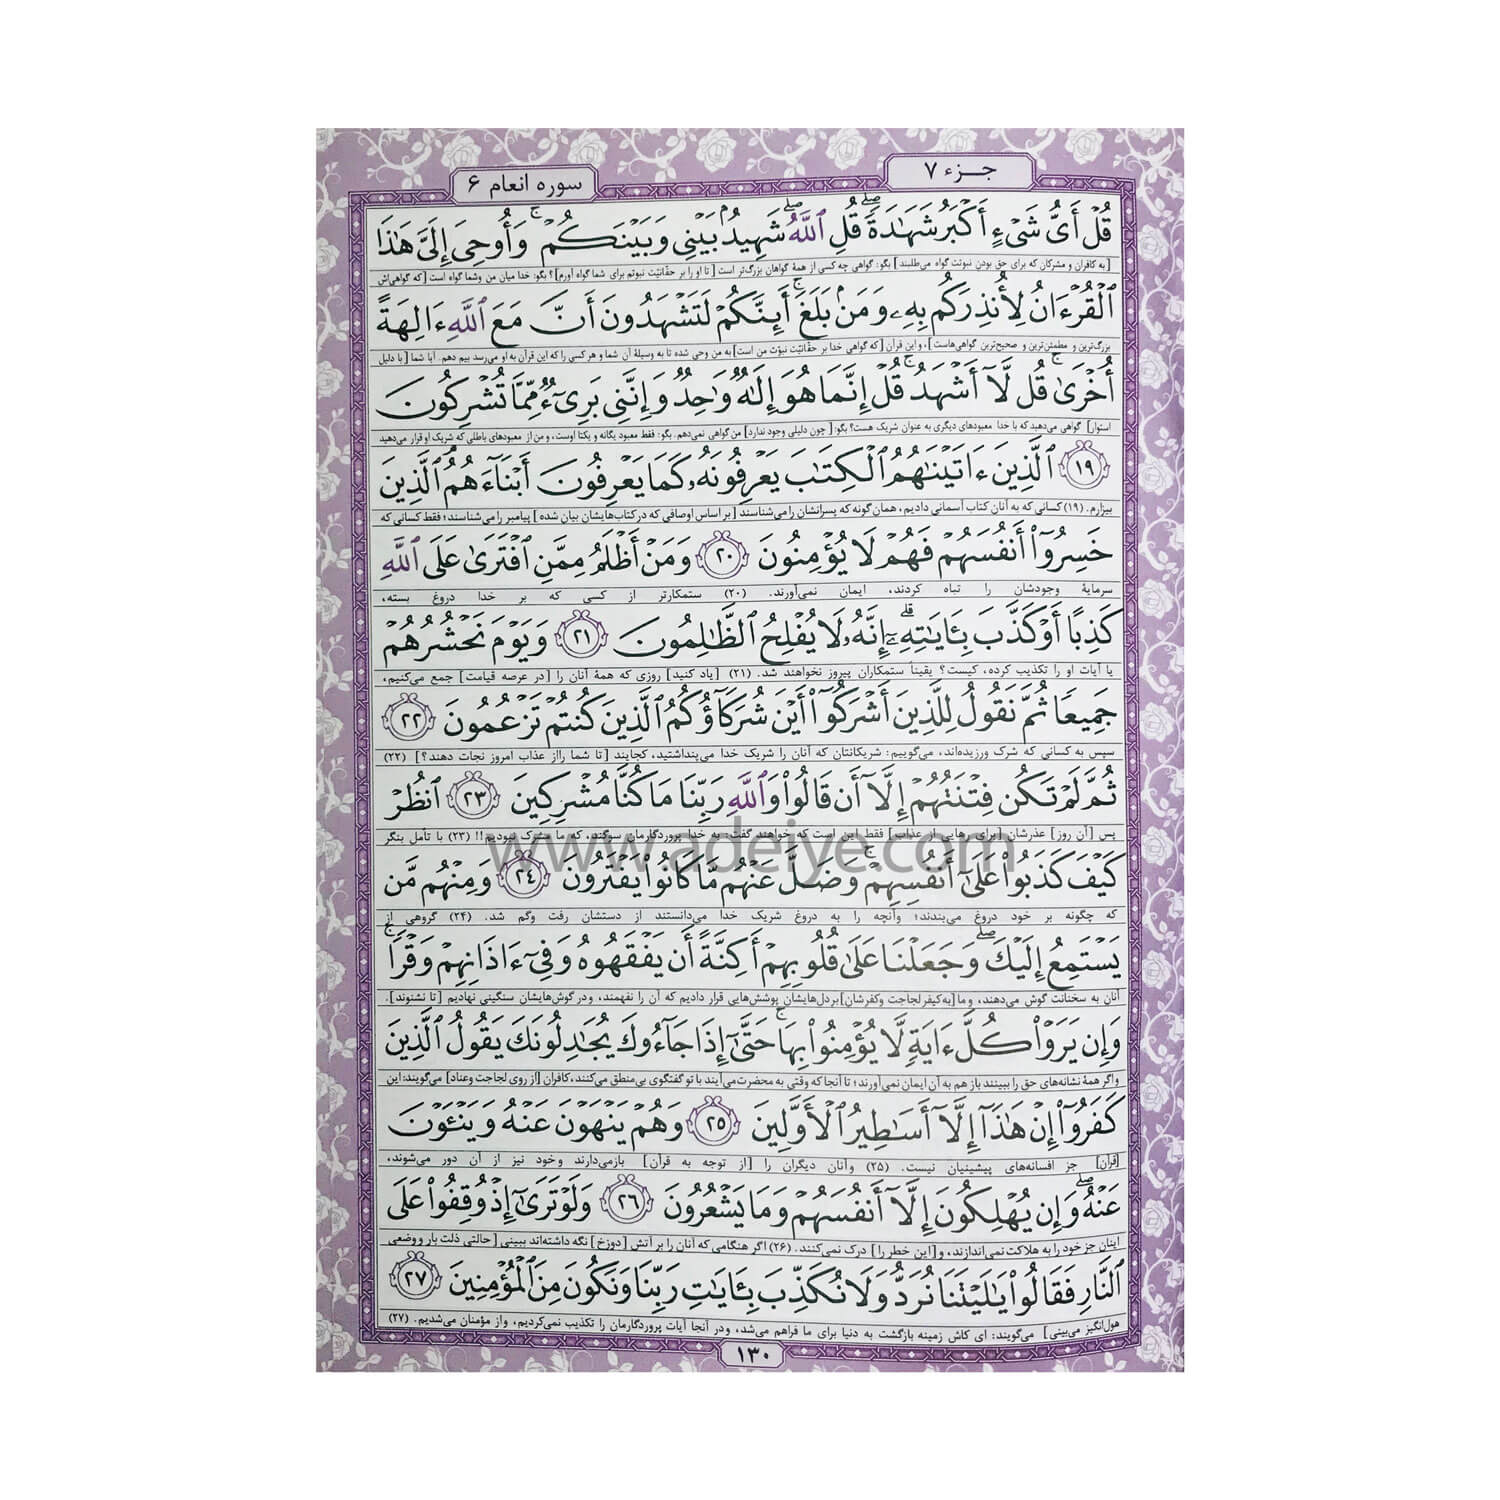 جزء ۷
سوره انعام ۶
قُلْ أَىُّ شَىْءٍ أَكْبَرُ شَهَٰدَةً ۖ قُلِ ٱللَّهُ ۖ شَهِيدٌۢ بَيْنِى وَبَيْنَكُمْ ۚ وَأُوحِىَ إِلَىَّ هَٰذَا
[به کافران و مشرکان که برای حق بودن نبوتت گواه می‌طلبند] بگو: گواهی چه کسی از همهٔ گواهان بزرگ‌تر است [تا او را بر حقّانیّت نبوتم برای شما گواه آورم]؟ بگو: خدا میان من وشما گواه است [که گواهی‌اش
ٱلْقُرْءَانُ لِأُنذِرَكُم بِهِۦ وَمَنۢ بَلَغَ ۚ أَئِنَّكُمْ لَتَشْهَدُونَ أَنَّ مَعَ ٱللَّهِ ءَالِهَةً
بزرگ‌ترین و مطمئن‌ترین و صحیح‌ترین گواهی‌هاست]، و این قرآن [که گواهی خدا بر حقّانیّت نبوّت من است] به من وحی شده تا به وسیلهٔ آن شما و هر کسی را که این قرآن به او می‌رسد بیم دهم. آیا شما [با دلیل
أُخْرَىٰ ۚ قُل لَّآ أَشْهَدُ ۚ قُلْ إِنَّمَا هُوَ إِلَٰهٌ وَٰحِدٌ وَإِنَّنِى بَرِىٓءٌ مِّمَّا تُشْرِكُونَ
استوار] گواهی می‌دهید که با خدا معبودهای دیگری به عنوان شریک هست؟ بگو: [چون دلیلی وجود ندارد] من گواهی نمی‌دهم. بگو: فقط معبود یگانه و یکتا اوست، و من از معبودهای باطلی که شریک او قرار می‌دهید
۱۹ ٱلَّذِينَ ءَاتَيْنَٰهُمُ ٱلْكِتَٰبَ يَعْرِفُونَهُۥ كَمَا يَعْرِفُونَ أَبْنَآءَهُمُ ٱلَّذِينَ
بیزارم. (۱۹) کسانی که به آنان کتاب آسمانی دادیم، همان گونه که پسرانشان را می‌شناسند [بر اساس اوصافی که در کتاب‌هایشان بیان شده] پیامبر را می‌شناسند؛ فقط کسانی که
خَسِرُوٓا۟ أَنفُسَهُمْ فَهُمْ لَا يُؤْمِنُونَ ۲۰ وَمَنْ أَظْلَمُ مِمَّنِ ٱفْتَرَىٰ عَلَى ٱللَّهِ
سرمایهٔ وجودشان را تباه کردند، ایمان نمی‌آورند. (۲۰) ستمکارتر از کسی که بر خدا دروغ بسته،
كَذِبًا أَوْ كَذَّبَ بِـَٔايَٰتِهِۦٓ ۗ إِنَّهُۥ لَا يُفْلِحُ ٱلظَّٰلِمُونَ ۲۱ وَيَوْمَ نَحْشُرُهُمْ
یا آیات او را تکذیب کرده، کیست؟ یقیناً ستمکاران پیروز نخواهند شد. (۲۱) [یاد کنید] روزی که همهٔ آنان را [در عرصه قیامت] جمع می‌کنیم،
جَمِيعًا ثُمَّ نَقُولُ لِلَّذِينَ أَشْرَكُوٓا۟ أَيْنَ شُرَكَآؤُكُمُ ٱلَّذِينَ كُنتُمْ تَزْعُمُونَ ۲۲
سپس به کسانی که شرک ورزیده‌اند، می‌گوییم: شریکانتان که آنان را شریک خدا می‌پنداشتید، کجایند [تا شما رااز عذاب امروز نجات دهند؟] (۲۲)
ثُمَّ لَمْ تَكُن فِتْنَتُهُمْ إِلَّآ أَن قَالُوا۟ وَٱللَّهِ رَبِّنَا مَا كُنَّا مُشْرِكِينَ ۲۳ ٱنظُرْ
پس [آن روز] عذرشان [برای رهایی از عذاب] فقط این است که خواهند گفت: به خدا پروردگارمان سوگند، که ما مشرک نبودیم!! (۲۳) با تأمل بنگر
www.adeiye.com
كَيْفَ كَذَبُوا۟ عَلَىٰٓ أَنفُسِهِمْ ۚ وَضَلَّ عَنْهُم مَّا كَانُوا۟ يَفْتَرُونَ ۲٤ وَمِنْهُم مَّن
که چگونه بر خود دروغ می‌بندند؛ وآنچه را به دروغ شریک خدا می‌دانستند از دستشان رفت وگم شد. (۲۴) گروهی از
يَسْتَمِعُ إِلَيْكَ ۖ وَجَعَلْنَا عَلَىٰ قُلُوبِهِمْ أَكِنَّةً أَن يَفْقَهُوهُ وَفِىٓ ءَاذَانِهِمْ وَقْرًا ۚ
آنان به سخنانت گوش می‌دهند، و ما [به‌کیفر لجاجت وکفرشان] بر دل‌هایشان پوشش‌هایی قرار دادیم که آن را نفهمند، ودر گوش‌هایشان سنگینی نهادیم [تا نشنوند].
وَإِن يَرَوْا۟ كُلَّ ءَايَةٍ لَّا يُؤْمِنُوا۟ بِهَا ۚ حَتَّىٰٓ إِذَا جَآءُوكَ يُجَٰدِلُونَكَ يَقُولُ ٱلَّذِينَ
واگر همهٔ نشانه‌های حق را ببینند باز هم به آن ایمان نمی‌آورند؛ تا آنجا که وقتی به محضرت می‌آیند با تو گفتگوی بی‌منطق می‌کنند، کافران [از روی لجاجت وعناد] می‌گویند: این
كَفَرُوٓا۟ إِنْ هَٰذَآ إِلَّآ أَسَٰطِيرُ ٱلْأَوَّلِينَ ۲٥ وَهُمْ يَنْهَوْنَ عَنْهُ وَيَنْـَٔوْنَ
[قرآن] جز افسانه‌های پیشینیان نیست. (۲۵) وآنان دیگران را [از توجه به قرآن] بازمی‌دارند وخود نیز از آن دور می‌شوند،
عَنْهُ ۖ وَإِن يُهْلِكُونَ إِلَّآ أَنفُسَهُمْ وَمَا يَشْعُرُونَ ۲٦ وَلَوْ تَرَىٰٓ إِذْ وُقِفُوا۟ عَلَى
اینان جز خود را به هلاکت نمی‌اندازند، و [این خطر را] درک نمی‌کنند. (۲۶) اگر هنگامی که آنان را بر آتش [دوزخ] نگه داشته‌اند ببینی [حالتی ذلت بار ووضعی
ٱلنَّارِ فَقَالُوا۟ يَٰلَيْتَنَا نُرَدُّ وَلَا نُكَذِّبَ بِـَٔايَٰتِ رَبِّنَا وَنَكُونَ مِنَ ٱلْمُؤْمِنِينَ ۲۷
هول‌انگیز می‌بینی] می‌گویند: ای کاش زمینه بازگشت به دنیا برای ما فراهم می‌شد، ودر آنجا آیات پروردگارمان را تکذیب نمی‌کردیم، واز مؤمنان می‌شدیم. (۲۷)
۱۳۰